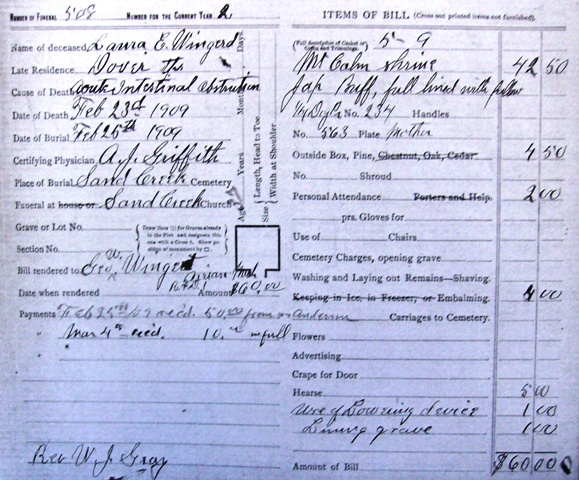 NUMBER OF FUNERAL 508 NUMBER FOR THE CURRENT YEAR 2
Name of deceased Laura E. Wingerd
Late Residence Dover
Cause of Death Acute Intestinal obstruction
Date of Death Feb 23rd 1909
Date of Burial Feb 25th 1909
Certifying Physician A. J. Griffith
Place of Burial Sand Creek Cemetery
Funeral at house or Sand Creek Church
Grave or Lot No.
Section No.
Draw lines for Graves already in the Plot and designate this one with a Cross. Show position of monument by
Bill rendered to Geo W. Winger Adrian Mich
Date when rendered Amount $60.00
Payments Feb 25th/09 recd. 50.00 from Anderson
Mar 4th recd. 10. in full
Rev W. J. Gray
Age Years Months Days
Size Length, Head to Toe
Width at Shoulder
ITEMS OF BILL (Cross out printed items not furnished).
(Full description of Casket or Coffin and Trimmings.) 5-9
Mt Calm shrine 42 50
Jap Buff, full lined with pillow
No. 234 Handles
No. 563 Plate Mother
Outside Box, Pine, Chestnut, Oak, Cedar 4 50
No. Shroud
Personal Attendance Porters and Help. 2 00
prs. Gloves for
Use of Chairs
Cemetery Charges, opening grave
Washing and Laying out Remains—Shaving.
Keeping in Ice, in Freezer, or Embalming. 4 00
Carriages to Cemetery.
Flowers
Advertising
Crape for Door
Hearse 5 00
Use of Lowering device 1 00
Lining grave 1 00
Amount of Bill $60 00